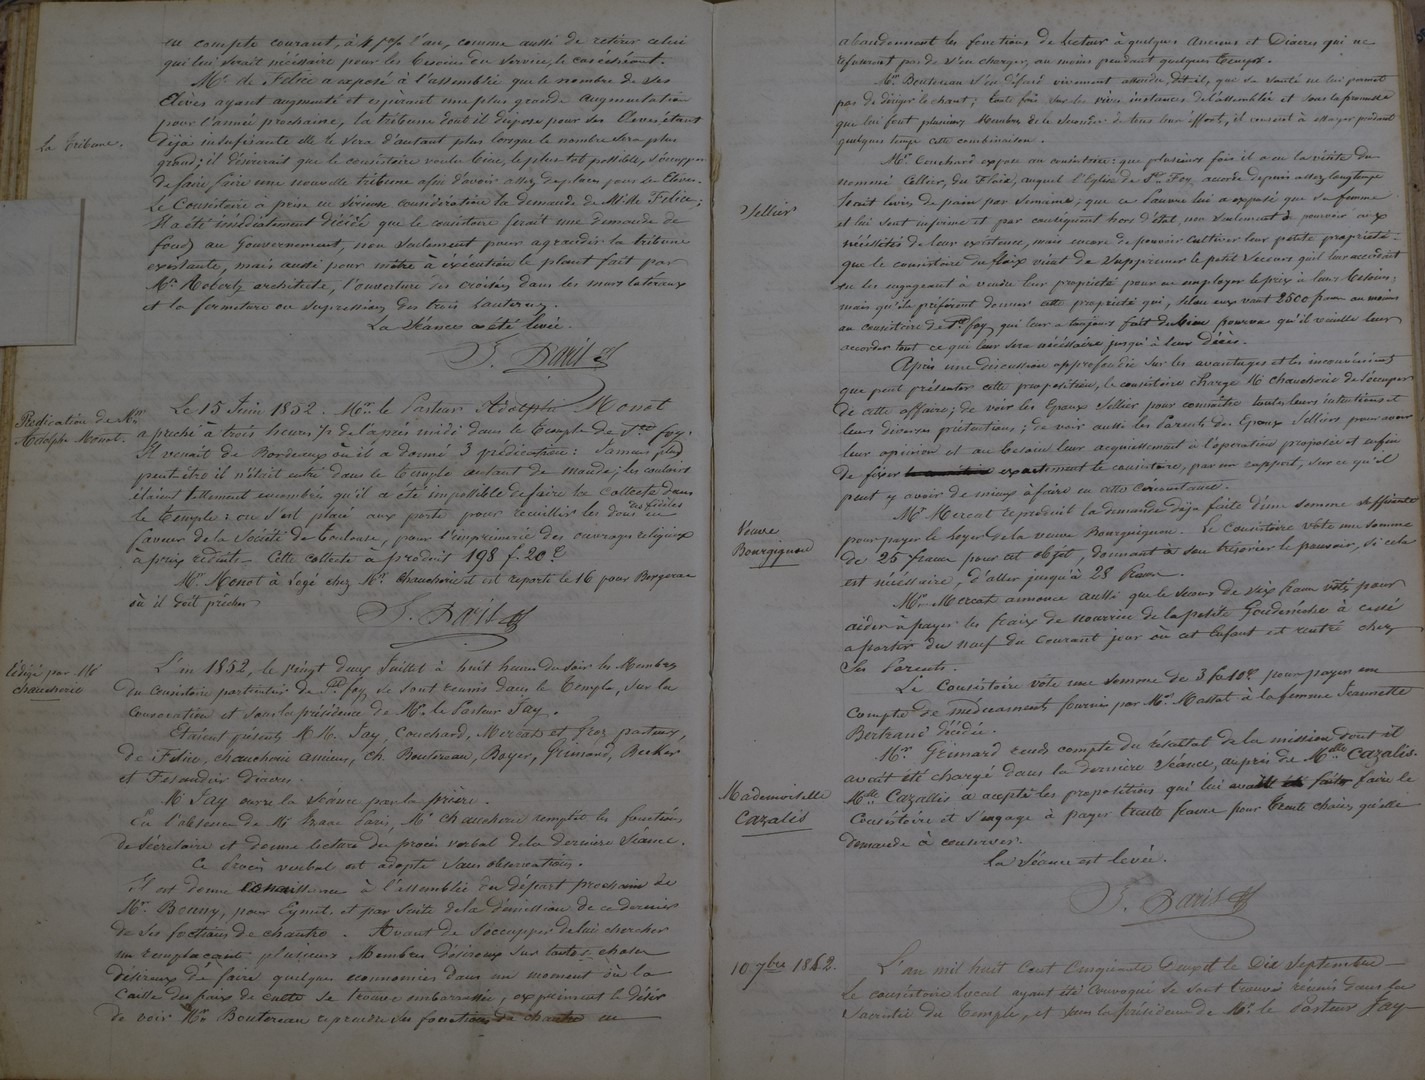 en compte courant, à 4 1/2 % l'an, comme aussi de retirer celui
qui lui serait nécessaire pour les besoins du service, le cas échéant.
Mr. de Felice a exposé à l'assemblée que le nombre de ses
Elèves ayant augmenté et espérant une plus grande augmentation
pour l'année prochaine, la tribune dont il dispose pour ses Elèves, étant
La Tribune.
déjà insufisante elle le sera d'autant plus lorsque le nombre sera plus
grand; il désirerait que le consistoire voulu bien, le plus tot possible, s'occuper
de faire faire une nouvelle tribune afin d'avoir assez de places pour ses Elèves.
Le Consistoire a prise en sérieuse considération la demande de Mr. de Felice;
Il a été immédiatement décidé que le consistoire ferait une demande de
fonds au Gouvernement, non seulement pour agrandir la tribune
existante, mais aussi pour mètre à éxécution le plant fait par
Mr. Roberty architecte, l'ouverture des croisées dans les murs latéraux
et la fermeture ou supression des trois lanternes.
La Séance a été levée.
I. Paris
Prédication de Mr.
Adolphe Monot.
Le 15 Juin 1852. Mr. le Pasteur Adolphe Monot
a preché à trois heures 1/2 de l'après midi dans le temple de Ste foy.
Il venait de Bordeaux où il a donné 3 prédications: Jamais
peut-être il n'était entré dans le temple autant de monde; les couloirs
étaient tellement encombrés qu'il a été impossible de faire la collecte dans
le temple: on s'est placé aux portes pour recueillir les dons des fidèles en
faveur de la Société de Toulouse, pour l'imprimerie des ouvrages religieux
à prix réduits. Cette collecte à produit 198 f. 20 c.
Mr. Monot à logé chez Mr. Chaucherie et est reparti le 16 pour Bergerac
où il doit prêcher
I. Paris
Rédigé par Mr
Chaucherie
L'an 1852, le vingt deux Juillet à huit heures du soir les Membres
du Consistoire particulier de Ste foy, se sont reunis dans le temple, sur la
Convocation et sous la présidence de Mr. le Pasteur Jay.
Etaient présents M.M. Jay, Couchard, Mercat et Gros pasteurs,
de Felice, Chaucherie anciens, Ch. Boutereau, Boyer, Grimard, Becker
et Fesandier diacres.
Mr Jay ouvre la séance par la prière.
En l'absence de Mr Isaac Paris, Mr Chaucherie remplit les fonctions
de Sécretaire et donne lecture du procès verbal de la dernière Séance.
Ce Procès verbal est adopté sans observations.
Il est donné connaissance à l'assemblée du départ prochain de
Mr. Bouny, pour Eymet, et par suite de la démission de ce dernier
de ses foctions de chantre. Avant de s'occupper de lui chercher
un remplaçant plusieurs Membres désireux sur toutes choses
désireux de faire quelques economies dans un moment où la
Caisse des frais de culte se trouve embarrassée, expriment le désir
de voir Mr. Boutereau reprendre ses fonctions de chantre en
abandonnant les fonctions de lecteur à quelques Anciens et Diacres qui ne
refuseront pas de s'en charger, au moins pendant quelques temps.
Mr. Boutereau s'en défend vivement attendu, dit-il, que sa santé ne lui permet
pas de diriger le chant; toute fois sur les vives instances de l'assemblée et sous la promesse
que lui font plusieurs Membres de le seconder de tous leurs efforts, il consent à essayer pendant
quelques temps cette combinaison.
Mr. Couchard expose au consistoire: que plusieurs fois il a eu la visite du
nommé Cellier, du Fleix, auquel l'Eglise de Ste Foy accorde depuis assez longtemps
trois livres de pain par semaine; que ce pauvre lui a exposé que sa femme
Sellier
et lui sont infirmes et par conséquent hors d'état, non seulement de pourvoir aux
nécéssités de leur existence, mais encore de pouvoir cultiver leur petite propriété.
que le consistoire du fleix vient de supprimer le petit secours qu'il leur accordait
en les engageant à vendre leur propriété pour en employer le prix à leurs besoins;
mais qu'ils préfèrent donner cette propriété qui, selon eux vaut 2500 francs au moins
au consistoire de Ste foy qui leur a toujours fait du bien pourvu qu'il veuille leur
accorder tout ce qui leur sera nécéssaire jusqu'à leur décès.
Après une discussion approfondie sur les avantages et les inconvénients
que peut présenter cette proposition, le consistoire charge Mr Chaucherie de s'occuper
de cette affaire; de voir les Epoux Sellier pour connaître toutes leurs intentions et
leurs diverses prétentions; de voir aussi les Parents des Epoux Selliers pour avoir
leur opinion et au besoin leur acquiessement à l'opération projetée et enfin
de fixer exactement le consistoire, par un rapport, sur ce qu'il
peut y avoir de mieux à faire en cette circonstance.
Mr Mercat reproduit la demande déjà faite d'une somme suffisante
Veuve
Bourguignon
pour payer le loyer de la veuve Bourguignon. Le Consistoire vote une somme
de 25 francs pour cet objet, donnant à son trésorier le pouvoir, si cela
est nécéssaire, d'aller jusqu'à 28 francs.
Mr. Mercat annonce aussi que le secours de six francs voté pour
aider à payer les frais de nourrice de la petite Goudenèche à cessé
à partir du neuf du courant jour où cet Enfant est rentré chez
ses Parents.
Le Consistoire vote une somme de 3 f 10c pour payer un
compte de médicaments fournis par Mr. Massat à la femme Jeannette
Bertrand décédée.
Mr. Grimard rend compte du résultat de la mission dont il
avait été chargé dans la dernière séance, auprès de Mlle Cazalis.
Mademoiselle
Cazalis
Mlle. Cazalis a accepté les propositions qui lui avait été faites faire le
Consistoire et s'engage à payer trente francs pour trente chaises qu'elle
demande à conserver.
La Séance est levée.
I. Paris
10 7bre 1852.
L'an mil huit Cent Cinquante deux et le Dix Septembre
Le consistoire local ayant été convoqué se sont trouvés réunis dans la
Sacristie du Temple, et sous la présidence de Mr. le Pasteur Jay